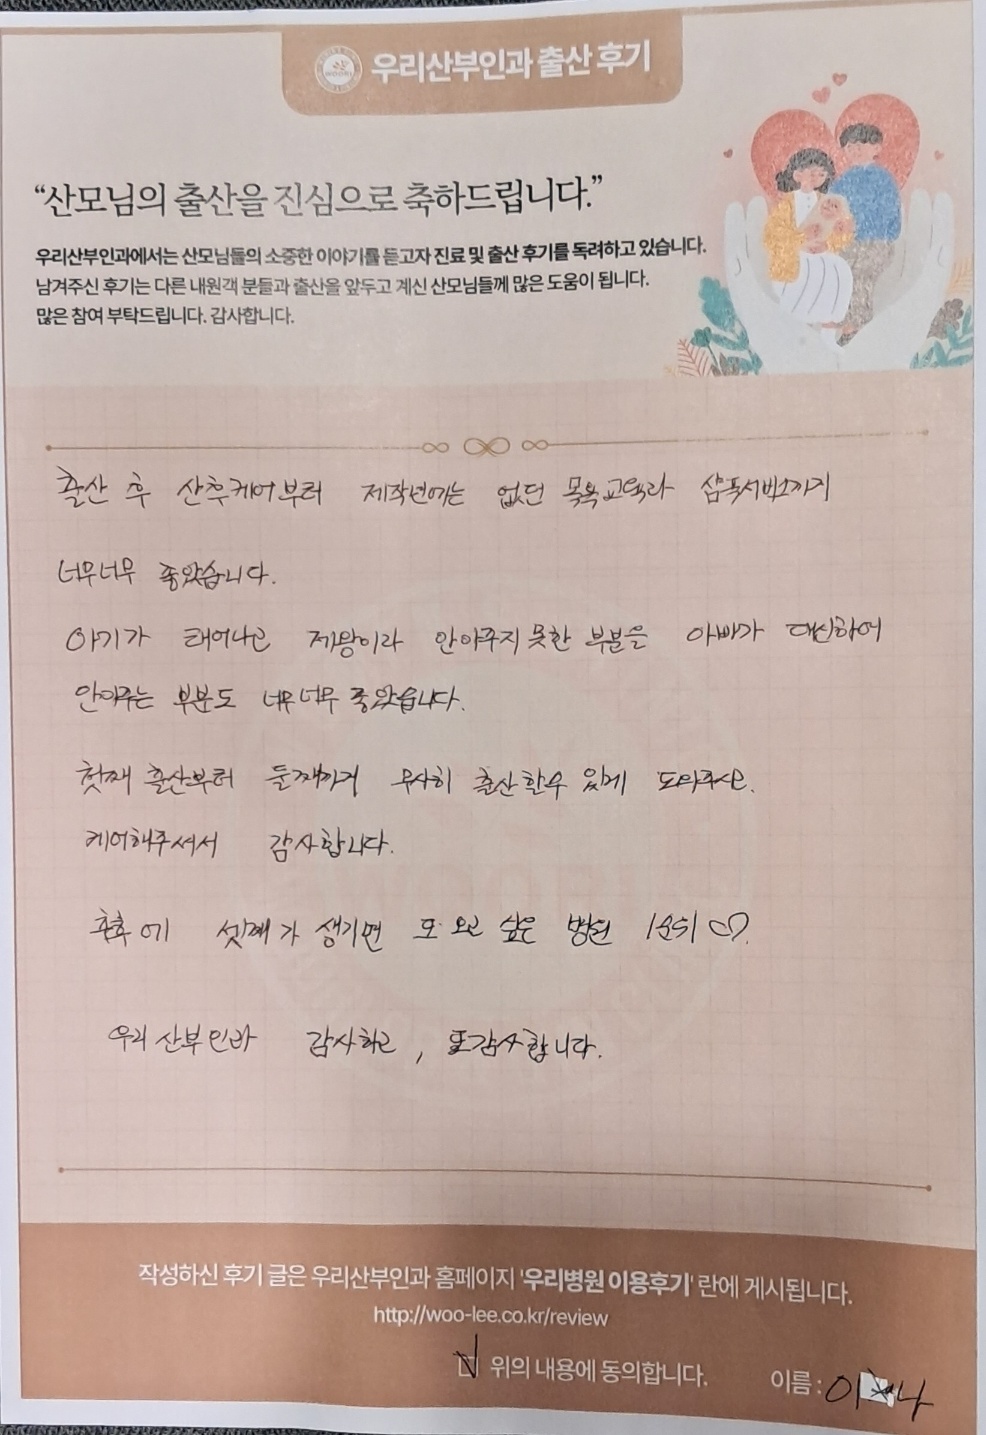 WOORI
우리산부인과 출산 후기
“산모님의 출산을 진심으로 축하드립니다.”
우리산부인과에서는 산모님들의 소중한 이야기를 듣고자 진료 및 출산 후기를 독려하고 있습니다.
남겨주신 후기는 다른 내원객 분들과 출산을 앞두고 계신 산모님들께 많은 도움이 됩니다.
많은 참여 부탁드립니다. 감사합니다.
출산 후 산후케어부터 제작년에는 없던 목욕교육과 샴푸서비스까지
너무너무 좋았습니다.
아기가 태어나고 제왕이라 안아주지 못한 부분을 아빠가 대신하여
안아주는 부분도 너무너무 좋았습니다.
첫째 출산부터 둘째까지 무사히 출산할수 있게 도와주시고.
케어해주셔서 감사합니다.
추후에 셋째가 생기면 또 오고 싶은 병원 1순위 ♡.
우리 산부인과 감사하고, 또감사합니다.
작성하신 후기 글은 우리산부인과 홈페이지 '우리병원 이용후기' 란에 게시됩니다.
http://woo-lee.co.kr/review
위의 내용에 동의합니다. 이름 : 이*나